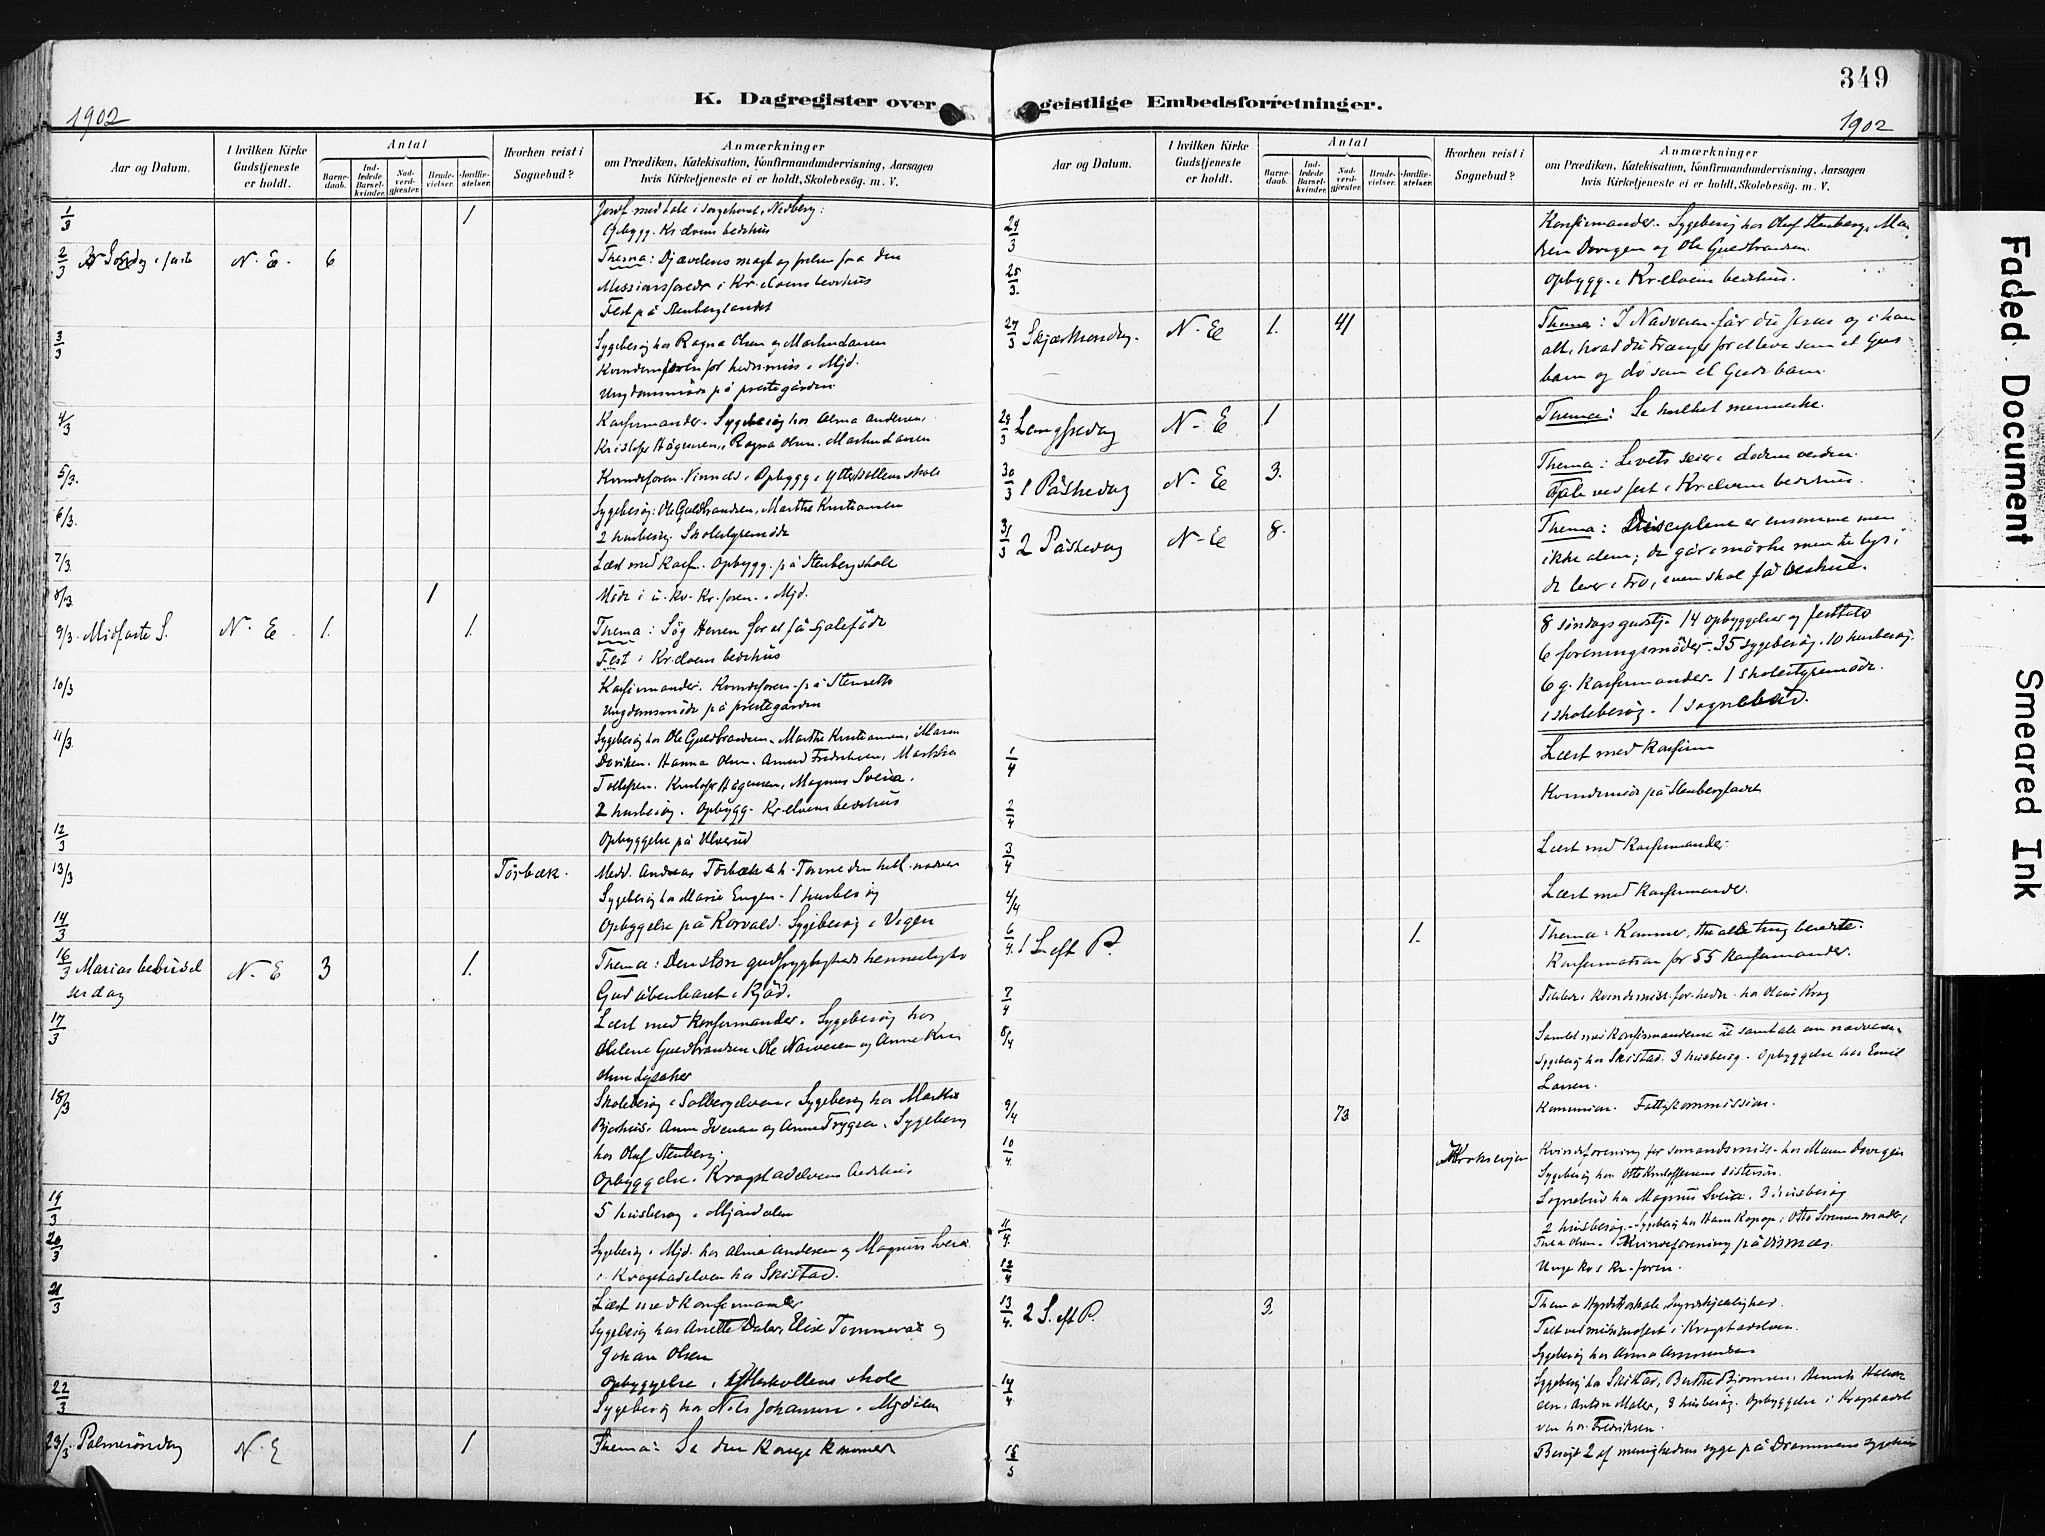 K. Dagregister over
1902
Aar og Datum.
I hvilken Kirke Gudstjeneste er holdt.
Antal
Barnedaab.
Indledede Barselkvinder.
Nadverdgjester.
Brudevielser.
Jordfæstelser.
Hvorhen reist i Sognebud?
Anmærkninger
om Prædiken, Katekisation, Konfirmandundervisning, Aarsagen
hvis Kirketjeneste ei er holdt, Skolebesøg. m. V.
1/3 1 Jordf. med tale i sørgehuset, Nedberg.
Opbygg. Kr.elvens bedehus
2/3 Søndag i faste N. E. 6 Thema: Djævelens magt og frelsen fra den
Missionsforedr. i Kr.elvens bedehus
Fest på Stenberglandet
3/3 Sygebesøg hos Ragna Olsen og Martin Larsen
Kvindeforen for hedemiss i Mjd.
Ungdomsmøde på prestegården
4/3 Konfirmander. Sygebesøg hos Alma Andersen,
Kristofer Hågensen, Ragna Olsen, Martin Larsen
5/3. Kvindeforen. Vinnæs. Opbygg. i Ytterkollens skole
6/3. Sygebesøg: Ole Guldbrandsen, Marthe Kristiansen
2 husbesøg. Skolestyremøde
7/3. Læst med konf. Opbygg. på Stenberg skole
8/3 1 Møde i u. kv. Kr. foren. i Mjd.
9/3. Midfaste S. N. E. 1. 1. Thema: Søg Herren for at få sjæleføde
Fest i Kr.elvens bedehus
10/3 Konfirmander. Kvindeforen. på Stenseth
Ungdomsmøde på prestegården
11/3. Sygebesøg hos Ole Guldbrandsen, Marthe Kristiansen, Maren
Doviken. Hanna Olsen. Amund Fredriksen, Martha
Tollefsen. Kristofer Hågensen, Magnus Sveia.
2 husbesøg. Opbygg. Kr.elvens bedehus
12/3 Opbyggelse på Ulverud
13/3 Tørbæk. Medd. Andreas Tørbæk & h. Tonne den hell. nadver
Sygebesøg hos Marie Engen. 1 husbesøg
14/3 Opbyggelse på Korvald. Sygebesøg i Vegen
16/3 Marias bebudel N. E 3 1. Thema: Den store gudfrygtigheds hemmelighed
sesdag Gud åbenbaret i Kjød.
17/3 Læst med konfirmander. Sygebesøg hos
Helene Guldbrandsen. Ole Narvesen og Anne Kri
stine Lysaker
18/3 Skolebesøg i Solbergelven. Sygebesøg hos Marthe
Bjerknes. Anne Iversen og Anne Trygsen. Sygebesøg
hos Olaf Stenberg.
Opbyggelse. Krogstadelvens bedehus
19/3 5 husbesøg i Mjøndalen
20/3 Sygebesøg i Mjd. hos Alma Andersen og Magnus Sveia
i Krogstadelven hos Skistad.
21/3 Læst med konfirmander
Sygebesøg hos Anette Daler, Elise Tommerås og
Johan Olsen
Opbyggelse i Ytterkollens skole
22/3 Sygebesøg hos Nils Johansen i Mjdalen
23/3. Palmesøndag N. E 1 Thema: Se den konge kommer
geistlige Embedsforretninger.
349
1902
Aar og Datum.
I hvilken Kirke Gudstjeneste er holdt.
Antal
Barnedaab.
Indledede Barselkvinder.
Nadverdgjester.
Brudevielser.
Jordfæstelser.
Hvorhen reist i Sognebud?
Anmærkninger
om Prædiken, Katekisation, Konfirmandundervisning, Aarsagen
hvis Kirketjeneste ei er holdt, Skolebesøg. m. V.
24/3 Konfirmander. Sygebesøg hos Olaf Stenberg, Ma-
ren Dovigen og Ole Guldbrandsen.
25/3. Opbygg. i Kr.elvens bedehus.
27/3 Skjærthorsdag. N. E 1. 41 Thema: I Nadveren får du Jesus og i ham
alt, hvad du trænger for at leve som et Guds
barn og dø som et Guds barn.
28/3 Langfredag N. E 1 Thema: Se hvilket menneske.
30/3 1 Påskedag N. E 3. Thema: Livets seier i dødens verden.
Tale ved fest i Kr.elvens bedehus.
31/3 2 Påskedag N. E 8. Thema: Disciplene er ensomme men
ikke alene; de går i mørke men te lys;
de lever i tro, men skal få beskue.
8 søndagsgudstj. 14 opbyggelser og festtale
6 foreningsmøder. 35 sygebesøg. 10 husbesøg.
6 g. konfirmander. 1 skolestyremøde.
1 skolebesøg. 1 sognebud.
1/4 Læst med konfirm
2/4 Kvindemøde på Stenberglandet
3/4 Læst med konfirmander.
4/4 Læst med konfirmander.
6/4. 1 S. eft P. 1. Thema: Kommer, thi alle ting beredte.
Konfirmation for 55 konfirmander.
7/4 Talte i kvindemiss. for. hedn. hos Olaus Krog
8/4 Samlet med konfirmanderne til samtale om nadveren.
Sygebesøg hos Skistad. 3 husbesøg. Opbyggelse hos Emil
Larsen.
9/4 73 Kommunion. Fattigkommission.
10/4. Krokseojen Kvindeforening for sømandsmiss. hos Maren Dovigen
Sygebesøg hos Otto Kristoffersens søstersøn.
Sognebud hos Magnus Sveia. 3 husbesøg
11/4. 2 husbesøg. Sygebesøg hos Hans Kopop, Otto Sørensens moder,
Thea Olsen. Kvindeforening på Vismæs.
12/4 Unge kvs Kr. foren.
13/4. 2 S. eft P. 3. Thema
Talt ved missionsfest i Krogstadelven.
Sygebesøg hos Anna Amundsen
14/4 Sygebesøg hos Skistad, Berthe Bjørnsen,
Anton Moler, 3 husbesøg. Opbyggelse i Krogstadel
ven hos Fredriksen.
15/3 Besøgt 2 af menighedens syge på Drammens sygehus
Faded Document
Smeared Ink